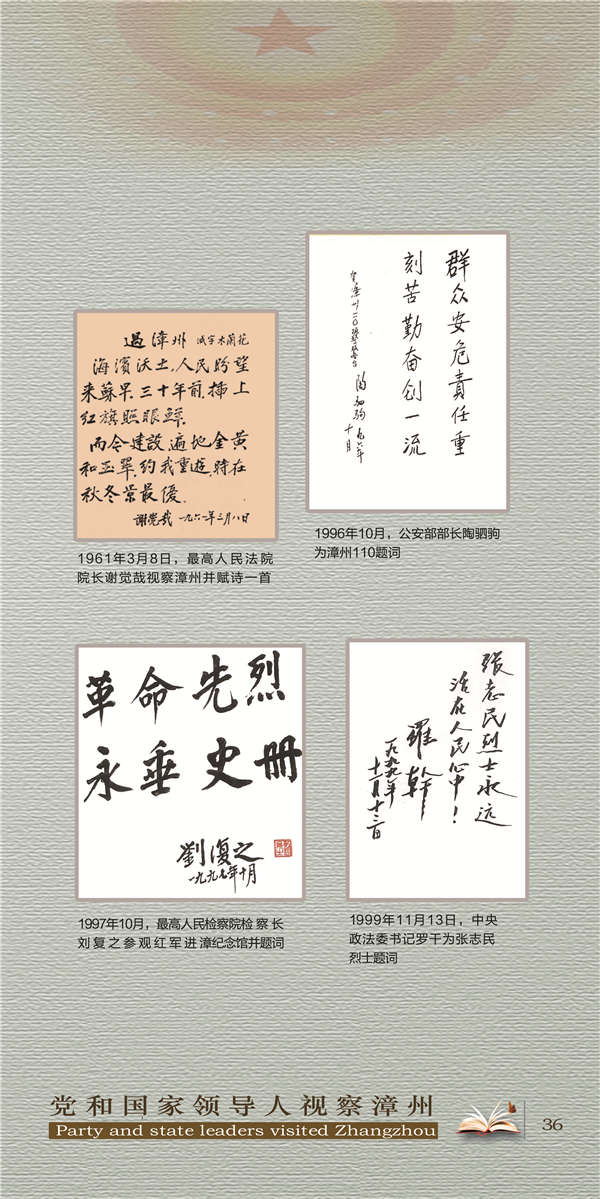 過漳州 減字木蘭花
海濱沃土，人民盼望
来蘇早。三十年前，插上
红旗照眼鲜。
而今建設，遍地金黄
和玉翠。约我重遊，時在
秋冬景最優。
谢觉哉 一九六一年三月八日
1961年3月8日，最高人民法院
院长谢觉哉视察漳州并赋诗一首
群众安危責任重
刻苦勤奋创一流
陶驷驹 九六年
十月
1996年10月，公安部部长陶驷驹
为漳州110题词
革命先烈
永垂史册
劉復之
一九九七年十月
1997年10月，最高人民检察院检察长
刘复之参观红军进漳纪念馆并题词
张志民烈士永远
活在人民心中！
羅幹
一九九九年
十一月十三日
1999年11月13日，中央
政法委书记罗干为张志民
烈士题词
党和国家领导人视察漳州
Party and state leaders visited Zhangzhou
36